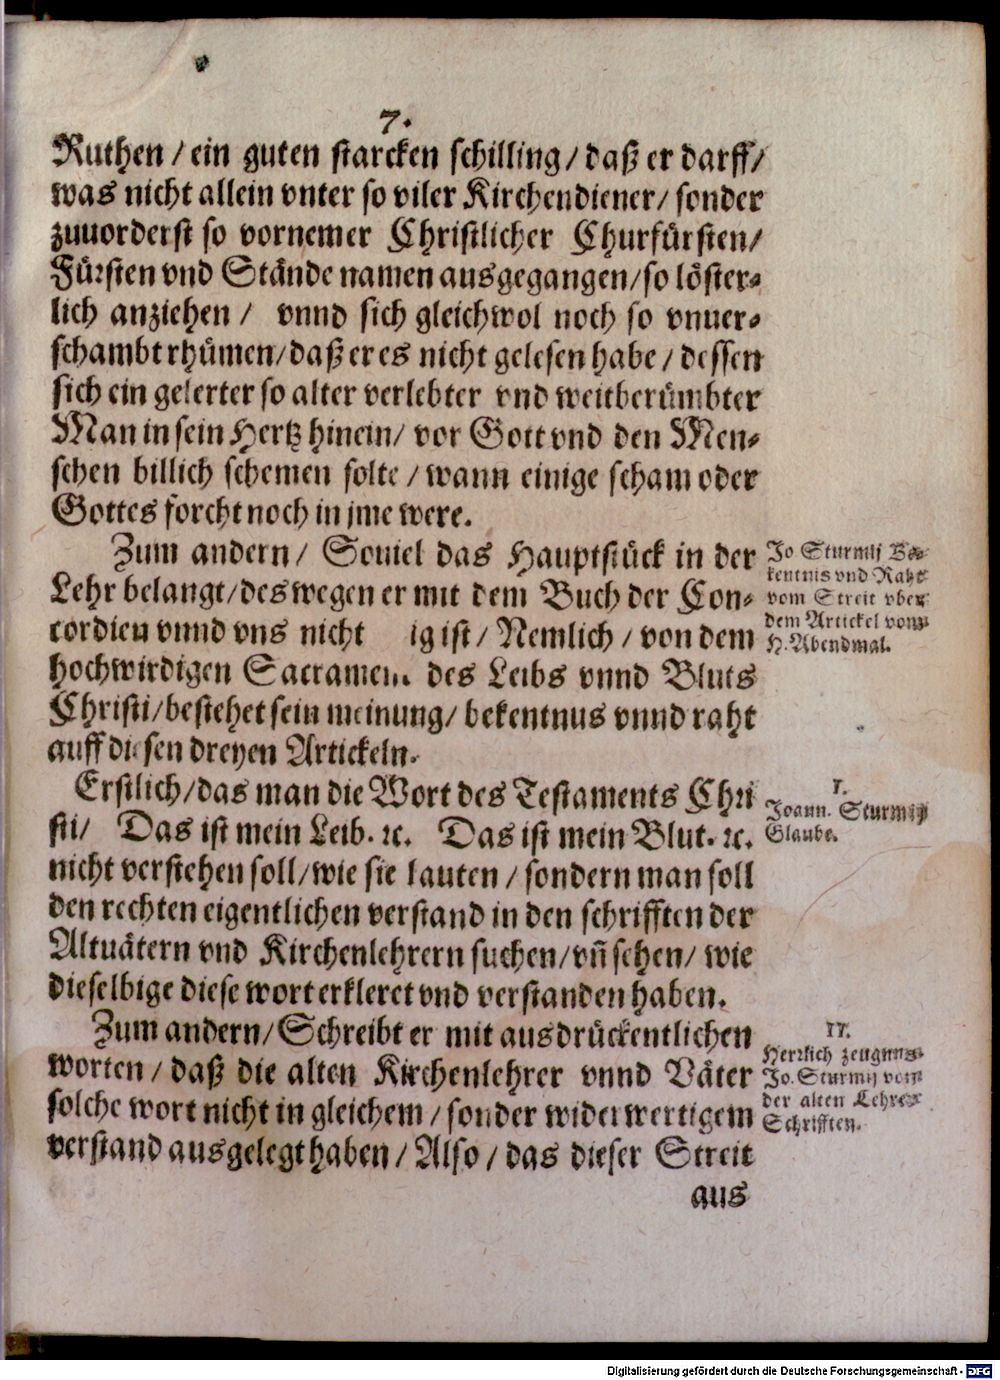 7.
Ruthen / ein guten starcken schilling / daß er darff /
was nicht allein vnter so viler Kirchendiener / sonder
zuuorderst so vornemer Christlicher Churfürsten /
Fürsten vnd Stände namen ausgegangen / so löster-
lich anziehen / vnnd sich gleichwol noch so vnuer-
schambt rhümen / daß er es nicht gelesen habe / dessen
sich ein gelerter so alter verlebter vnd weitberümbter
Man in sein Hertz hinein / vor Gott vnd den Men-
schen billich schemen solte / wann einige scham oder
Gottes forcht noch in jme were.
Zum andern / Souiel das Hauptstück in der
Lehr belangt / deswegen er mit dem Buch der Con-
cordien vnnd vns nicht ig ist / Nemlich / von dem
hochwirdigen Sacrament des Leibs vnnd Bluts
Christi / bestehet sein meinung / bekentnus vnnd raht
auff diesen dreyen Artickeln.
Jo Sturmij Be-
kentnis vnd Raht
vom Streit vber
dem Artickel vom
H. Abendmal.
Erstlich / das man die Wort des Testaments Chri
sti / Das ist mein Leib. ꝛc. Das ist mein Blut. ꝛc.
nicht verstehen soll / wie sie lauten / sondern man soll
den rechten eigentlichen verstand in den schrifften der
Altuätern vnd Kirchenlehrern suchen / vñ sehen / wie
dieselbige diese wort erkleret vnd verstanden haben.
I.
Joann. Sturmij
Glaube.
Zum andern / Schreibt er mit ausdrückentlichen
worten / daß die alten Kirchenlehrer vnnd Väter
solche wort nicht in gleichem / sonder widerwertigem
verstand ausgelegt haben / Also / das dieser Streit
II.
Herrlich zeugnus
Jo. Sturmij vom
der alten Lehrer
Schrifften.
aus
Digitalisierung gefördert durch die Deutsche Forschungsgemeinschaft - DFG